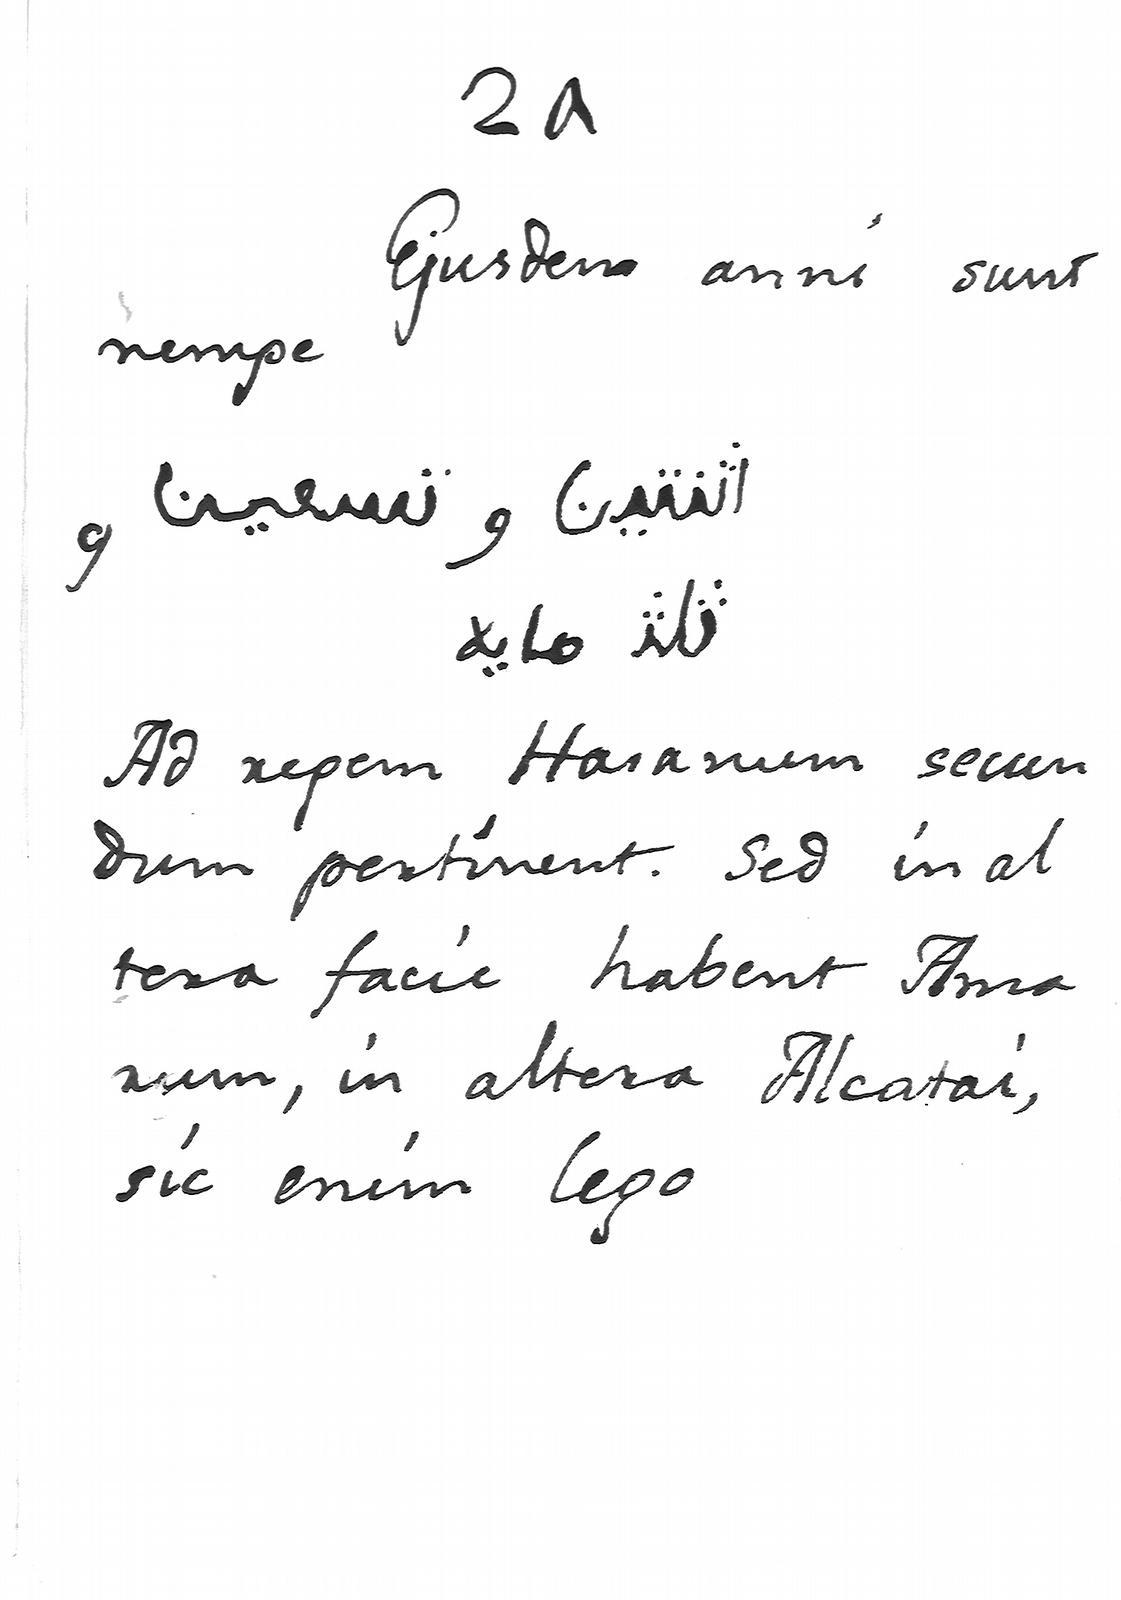 2 A
Ejusdem anni sunt
nempe
اثنتين و تسعين و
ثلث مايه
Ad regem Hasanum secun
dum pertinent. Sed in al
tera facie habent Ama
rum, in altera Alcatai,
sic enim lego